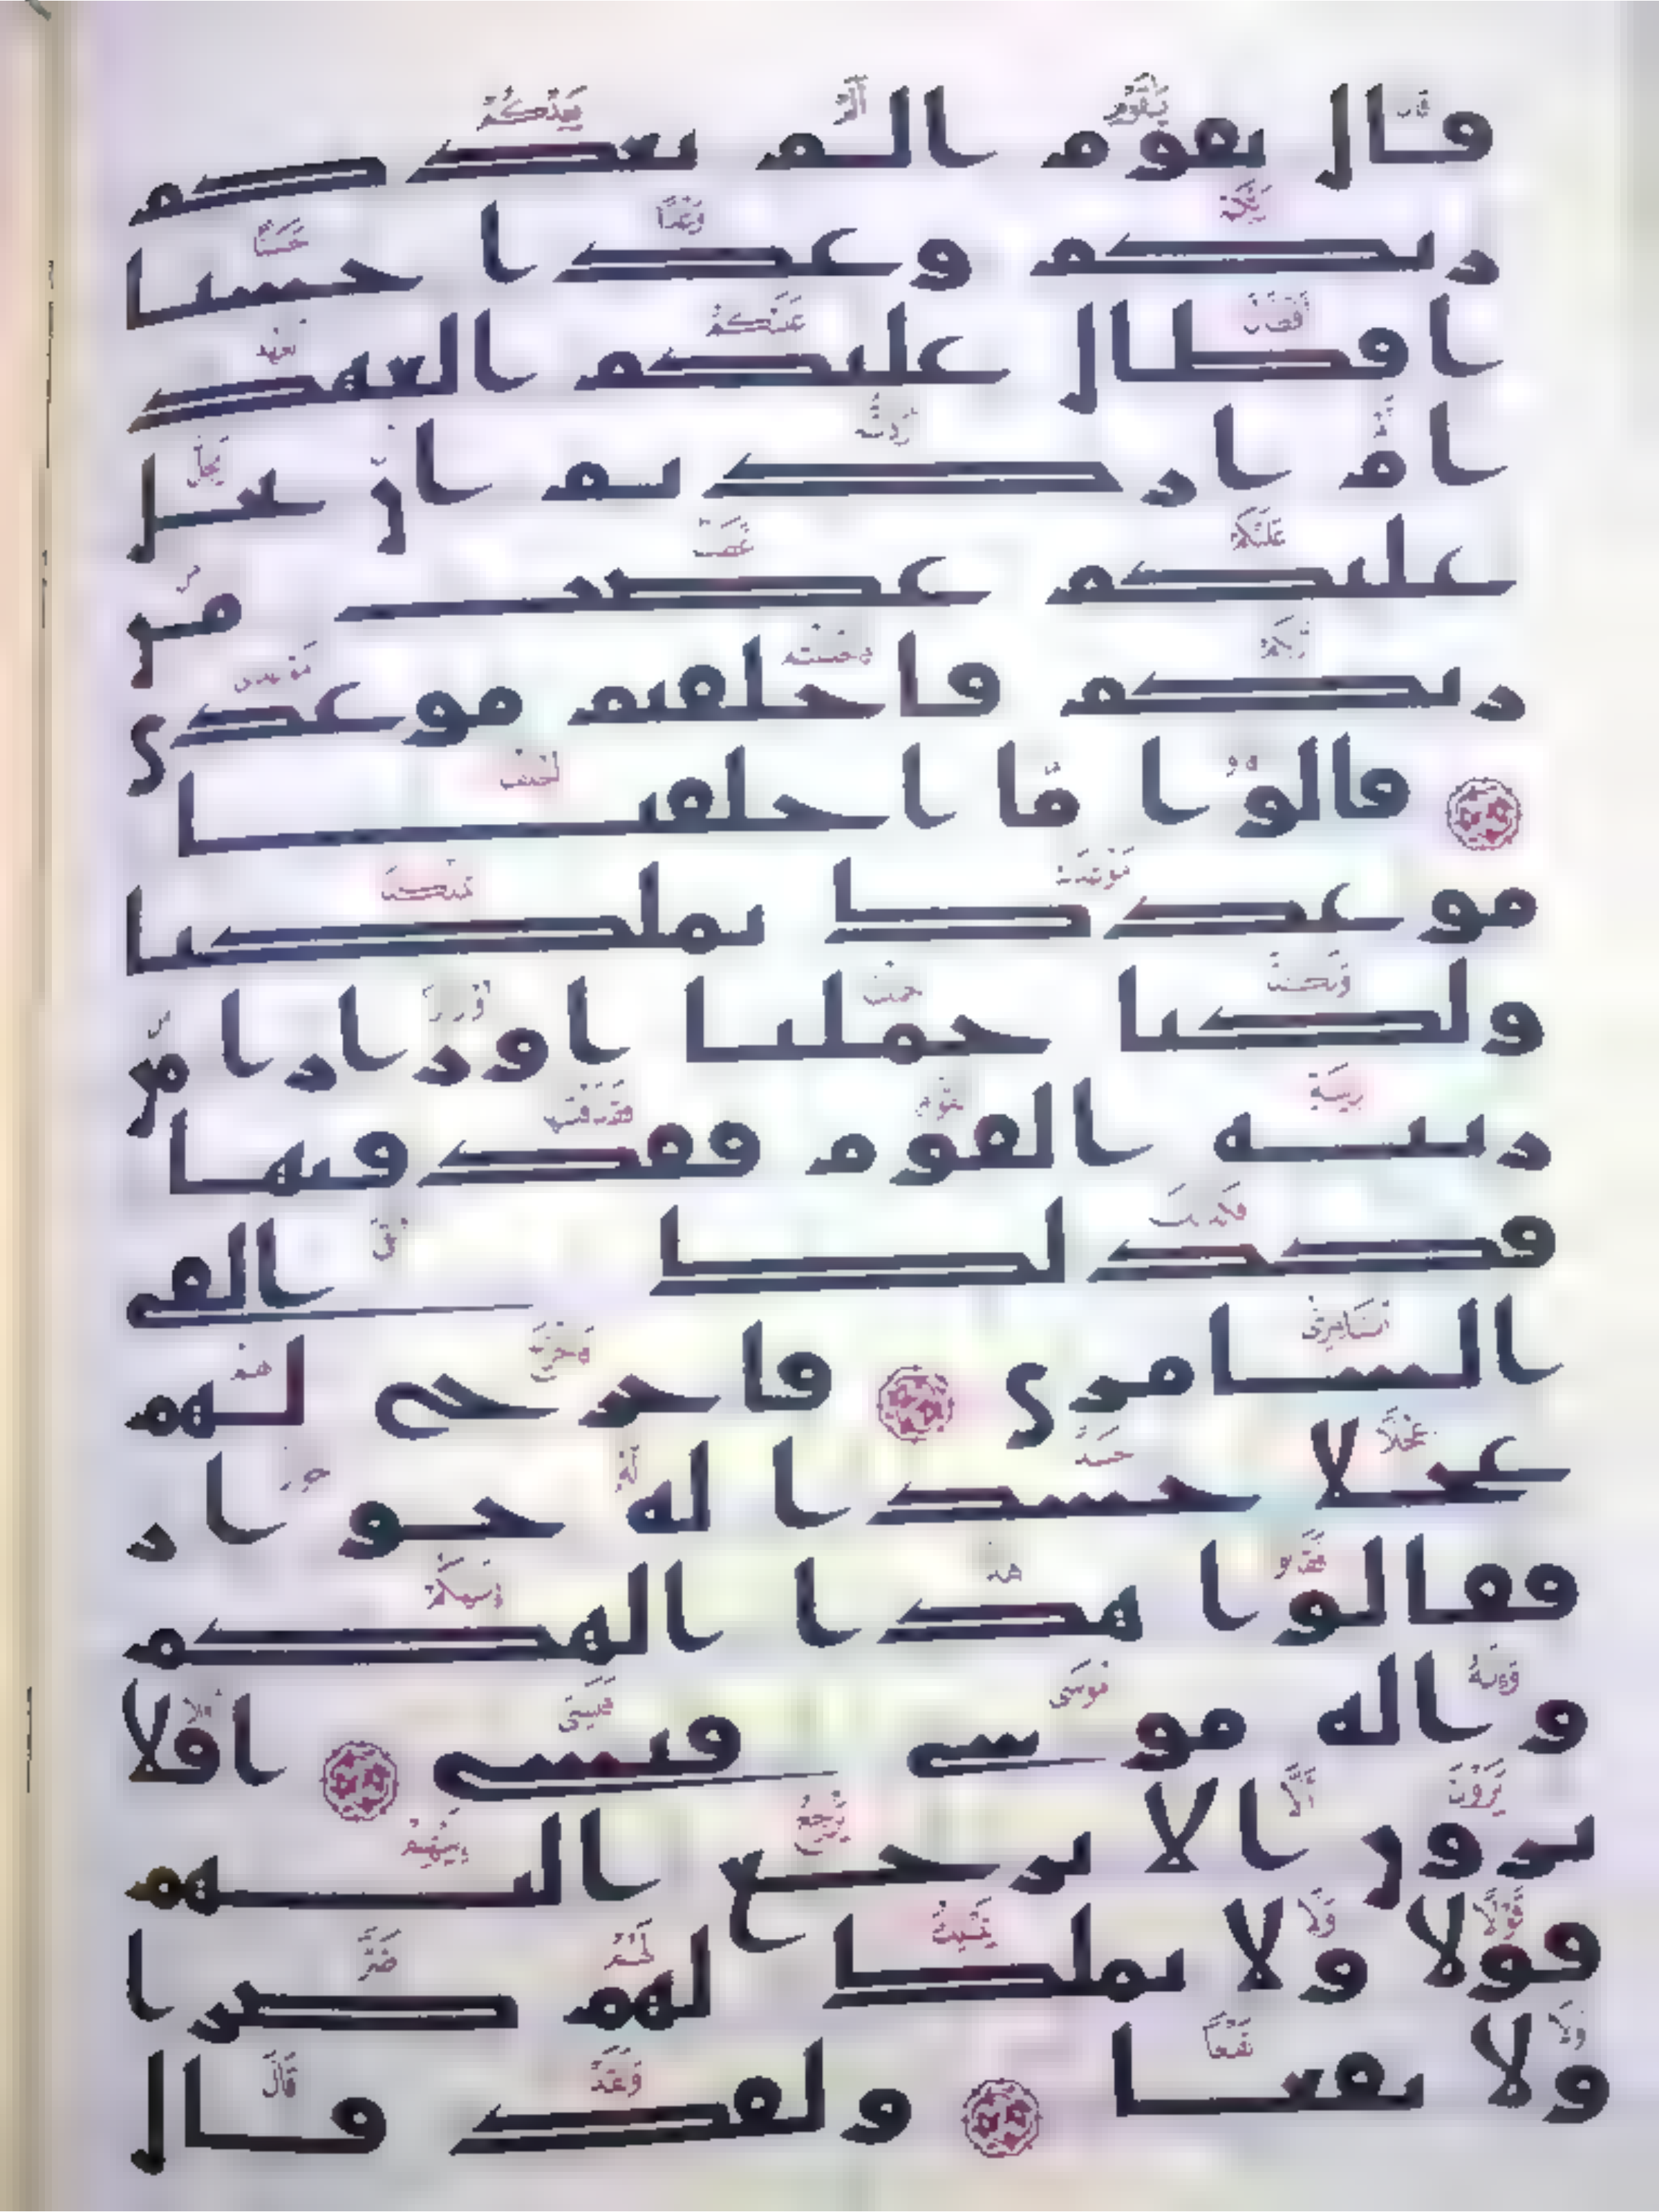 قال يقوم الم يعدكم
ربكم وعدا حسنا
افطال عليكم العهد
ام اردتم ان يحل
عليكم غضب من
ربكم فاخلفتم موعدي
قالوا ما اخلفنا
موعدك بملكنا
ولكنا حملنا اوزارا من
زينة القوم فقذفنها
فكذلك القى
السامري فاخرج لهم
عجلا جسدا له خوار
فقالوا هذا الهكم
واله موسى فنسي افلا
يرون الا يرجع اليهم
قولا ولا يملك لهم ضرا
ولا نفعا ولقد قال